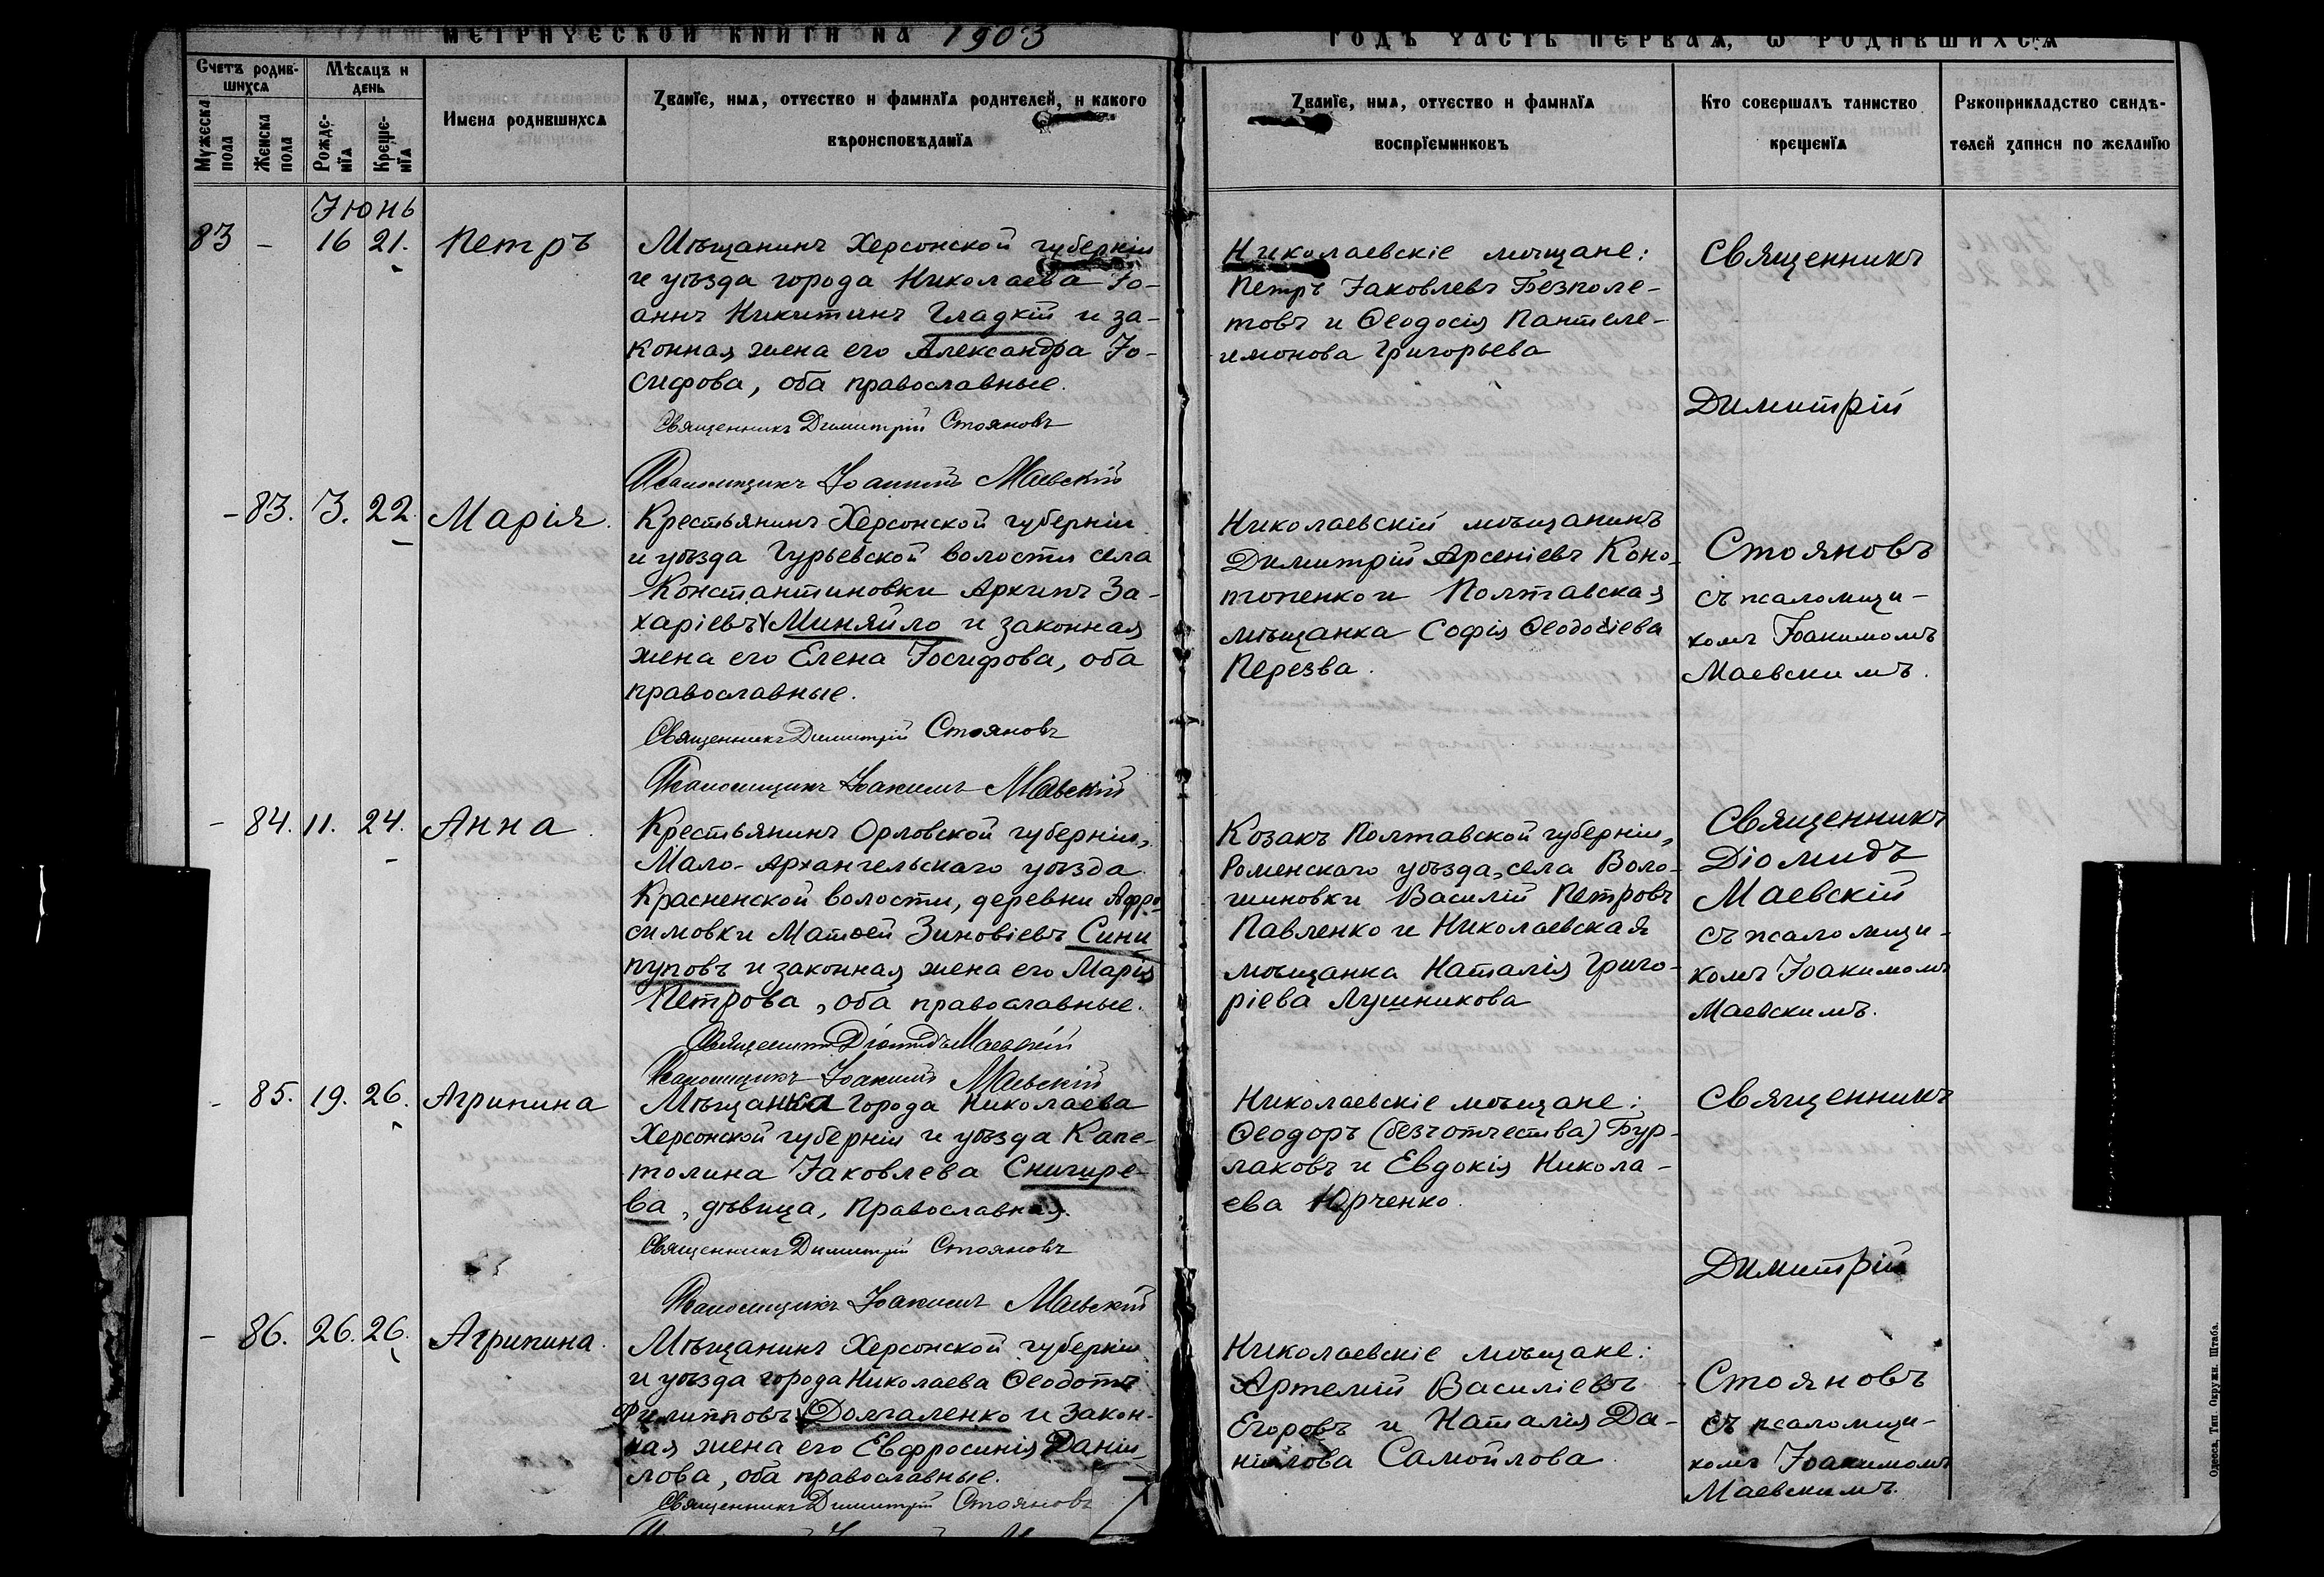 МЕТРИЧЕСКОЙ КНИГИ НА 1903
ГОДЪ ЧАСТЬ ПЕРВАЯ, Ѡ РОДИВШИХСЯ
Счетъ родив-
шихся
Мужеска
пола
Женска
пола
Мѣсяцъ и
день
Рожде-
нія
Креще-
нія
Имена родившихся
Званїе, имя, отчество и фамилїя родителей, и какого
вѣроисповѣданїя
Званїе, имя, отчество и фамилїя
воспрїемниковъ
Кто совершалъ таинство
крещенїя
Рукоприкладство свидѣ-
телей записи по желанїю
Іюнь
83 - 16 21. Петръ
Мѣщанинъ Херсонской губерніи
и уѣзда города Николаева Іо-
аннъ Никитинъ Гладкій и за-
конная жена его Александра Іо-
сифова, оба православные.
Священникъ Димитрій Стояновъ
Псаломщикъ Іоакимъ Маевскій
Николаевскіе мѣщане:
Петръ Іаковлевъ Безполе-
товъ и Ѳеодосія Пантеле-
имонова Григорьева
Священникъ
Димитрій
- 83. 3. 22. Марія.
Крестьянинъ Херсонской губерніи
и уѣзда Гурьевской волости села
Константиновки Архипъ За-
харіевъ Миняйло и законная
жена его Елена Іосифова, оба
православные.
Священникъ Димитрій Стояновъ
Псаломщикъ Іоакимъ Маевскій
Николаевскій мѣщанинъ
Димитрій Арсеніевъ Коно-
попенко и Полтавская
мѣщанка Софія Ѳеодосіева
Перезва.
Стояновъ
съ псаломщи-
комъ Іоакимомъ
Маевскимъ.
- 84. 11. 24. Анна.
Крестьянинъ Орловской губерніи,
Мало-Архангельскаго уѣзда
Красненской волости, деревни Афро-
симовки Матѳей Зиновіевъ Сини
пуповъ и законная жена его Марія
Петрова, оба православные.
Священникъ Діомидъ Маевскій
Псаломщикъ Іоакимъ Маевскій
Козакъ Полтавской губерніи,
Роменскаго уѣзда, села Воло-
шиновки Василій Петровъ
Павленко и Николаевская
мѣщанка Наталія Григо-
ріева Лушникова
Священникъ
Діомидъ
Маевскій
съ псаломщи-
комъ Іоакимомъ
Маевскимъ.
- 85. 19. 26. Агрипина
Мѣщанка города Николаева
Херсонской губерніи и уѣзда Капе-
толина Іаковлева Снигире-
ва, дѣвица, православная.
Священникъ Димитрій Стояновъ
Псаломщикъ Іоакимъ Маевскій
Николаевскіе мѣщане:
Ѳеодоръ (безъ отчества) Бур-
лаковъ и Евдокія Никола-
ева Юрченко.
Священникъ
Димитрій
- 86. 26. 26. Агрипина.
Мѣщанинъ Херсонской губерніи
и уѣзда города Николаева Ѳеодотъ
Филипповъ Долгаленко и закон-
ная жена его Евфросинія Даніи-
лова, оба православные.
Священникъ Димитрій Стояновъ
Николаевскіе мѣщане:
Артемій Василіевъ
Егоровъ и Наталія Да-
ніилова Самойлова
Стояновъ
съ псаломщи-
комъ Іоакимомъ
Маевскимъ.
Одесса, Тип. Окружн. Штаба.